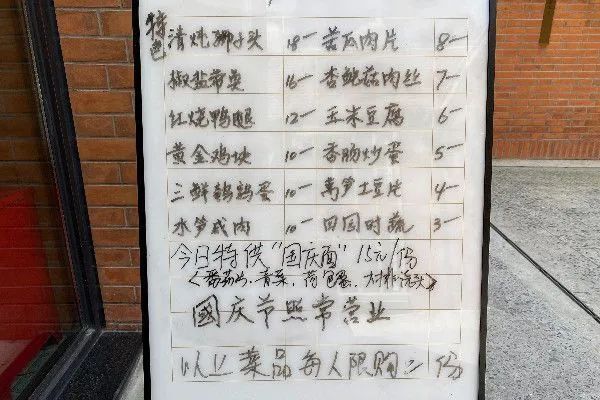 特色 清炖狮子头 18- 苦瓜肉片 8-
椒盐带鱼 16- 杏鲍菇肉丝 7-
红烧鸭腿 12- 玉米豆腐 6-
黄金鸡块 10- 香肠炒蛋 5-
三鲜鹌鹑蛋 10- 莴笋土豆片 4-
水笋成肉 10- 田园时蔬 3-
今日特供“国庆面”15元/份
青菜、荷包蛋、大排
國庆节照常营业
以上菜品每人限购2份